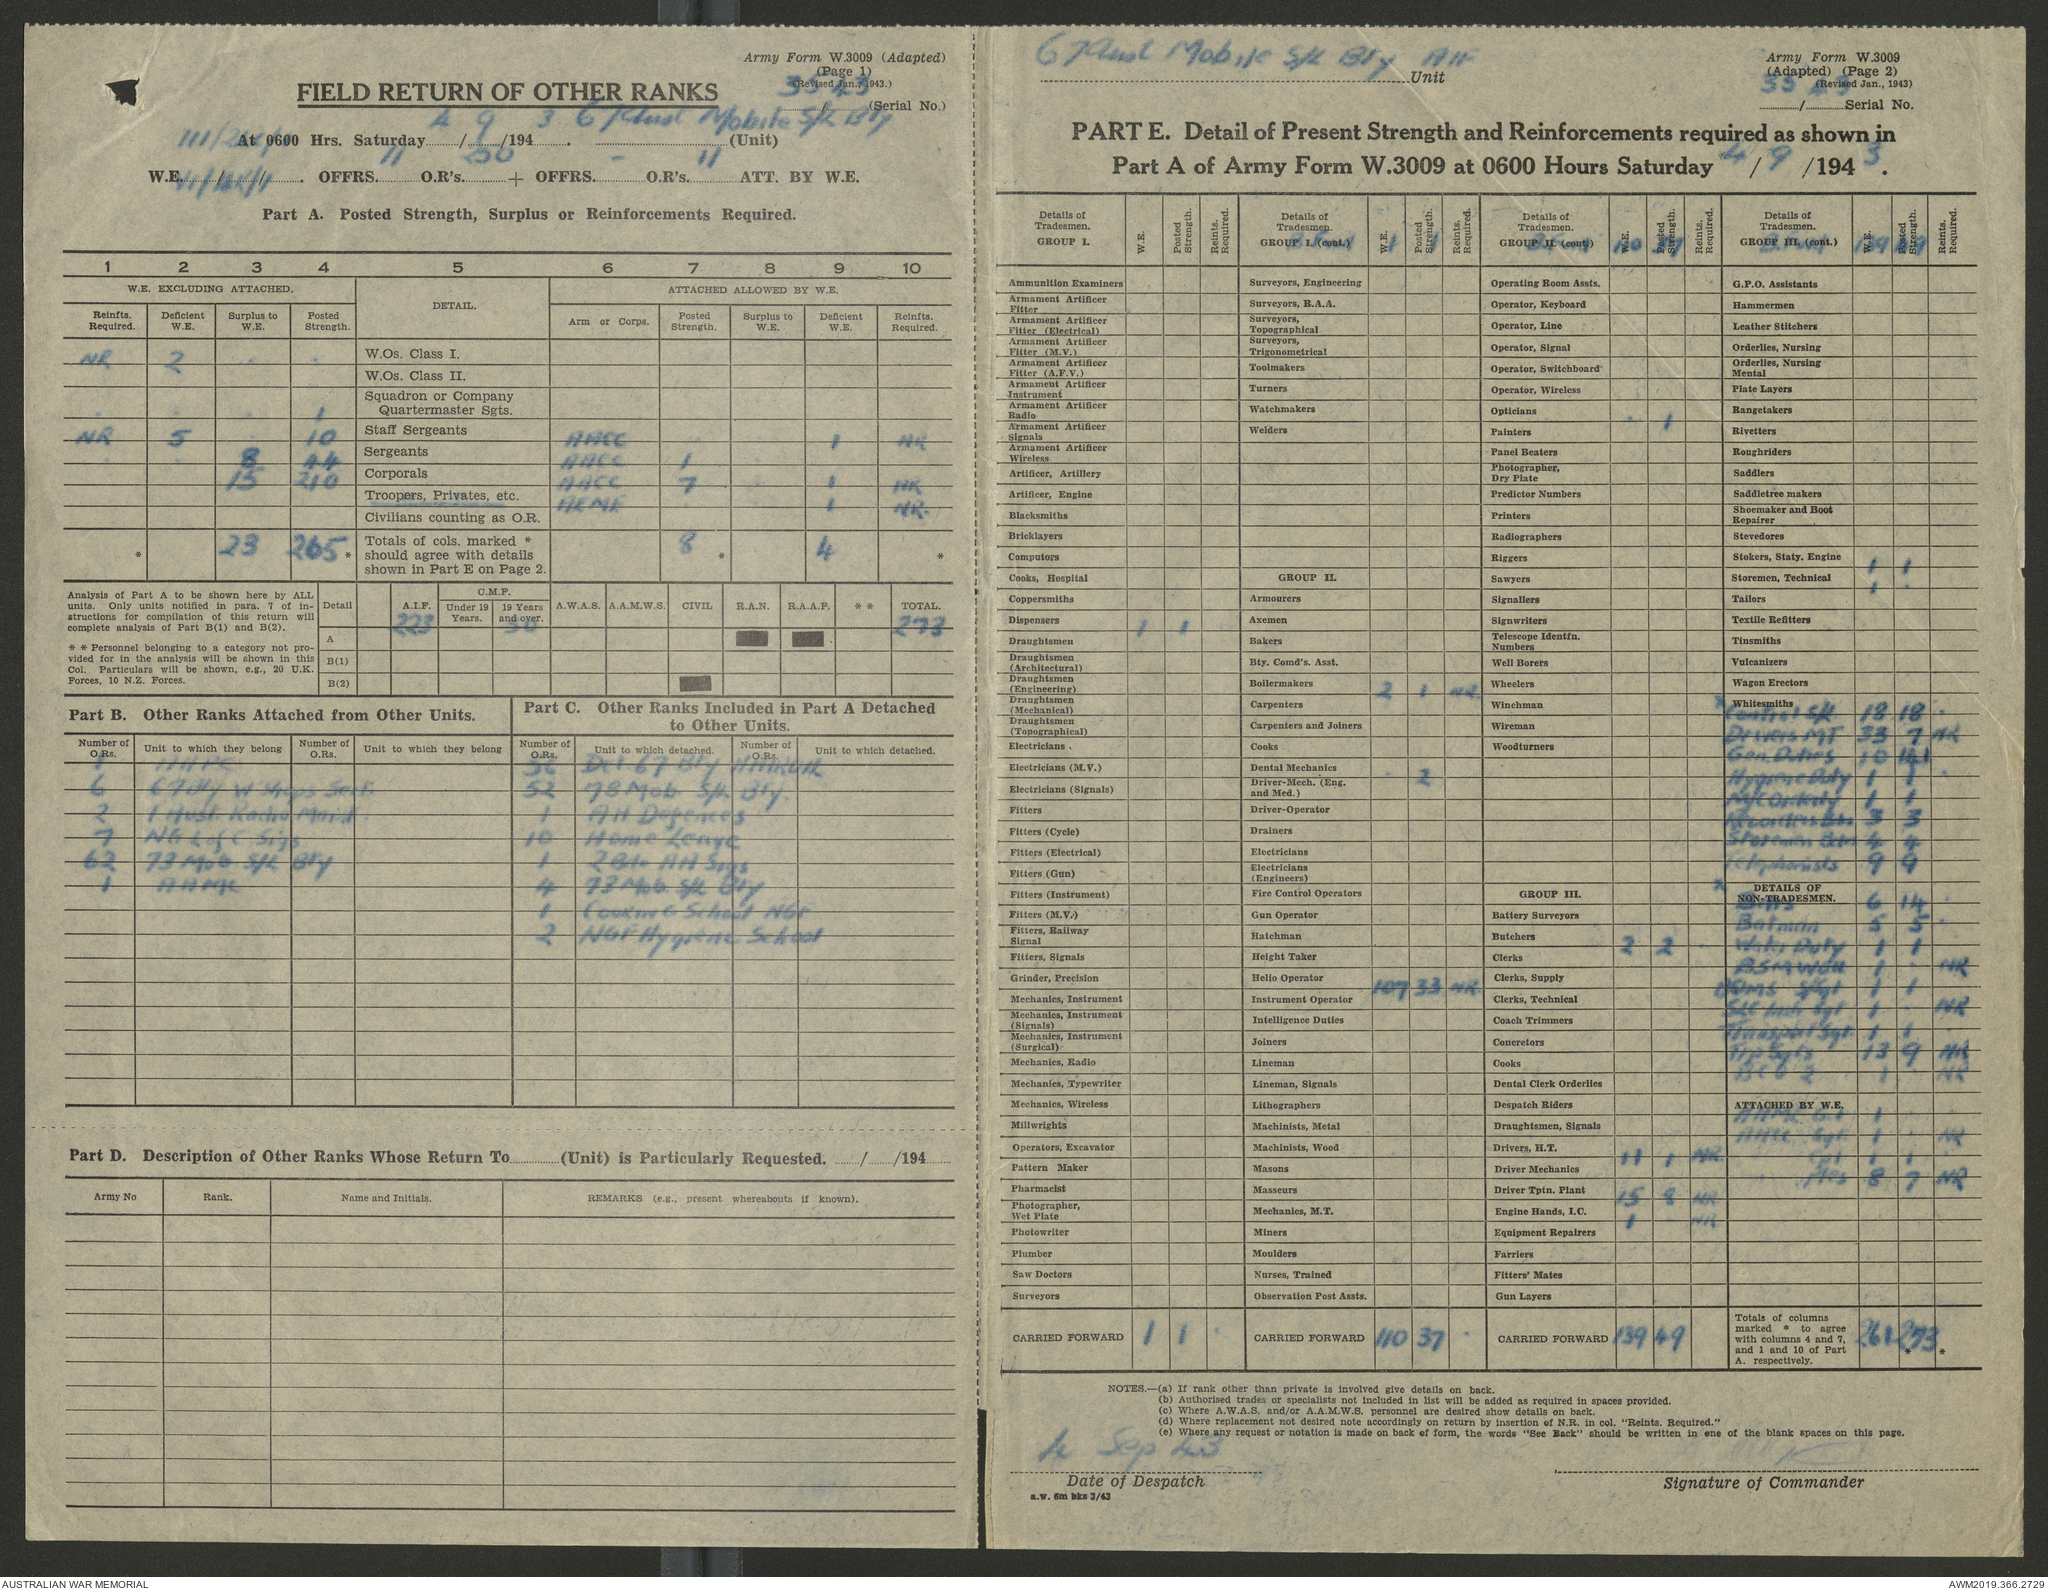 Army Form W.3009 (Adapted)
(Page 1)
(Revised Jan., 1943.)
35 23
/ (Serial No.)
FIELD RETURN OF OTHER RANKS
At 0600 Hrs. Saturday 4 / 9 /194 3. 67 Aust Mobile S/L Bty (Unit)
W.E. OFFRS. 11 O.R's. 250 + OFFRS. - O.R's. 11 ATT. BY W.E.
Part A. Posted Strength, Surplus or Reinforcements Required.
1 2 3 4 5 6 7 8 9 10
W.E. EXCLUDING ATTACHED. DETAIL. ATTACHED ALLOWED BY W.E.
Reinfts. Required. Deficient W.E. Surplus to W.E. Posted Strength. Arm or Corps. Posted Strength. Surplus to W.E. Deficient W.E. Reinfts. Required.
NR 2 . . W.Os. Class I.
W.Os. Class II.
. . . 1 Squadron or Company Quartermaster Sgts.
NR 5 . 10 Staff Sergeants AACC . . 1 NR
. . 8 44 Sergeants AACC 1
15 210 Corporals AACC 7 . 1 NR
Troopers, Privates, etc. AEME . 1 NR.
Civilians counting as O.R.
* 23 265 * Totals of cols. marked * should agree with details shown in Part E on Page 2. 8 * 4 *
Analysis of Part A to be shown here by ALL units. Only units notified in para. 7 of instructions for compilation of this return will complete analysis of Part B(1) and B(2).
* * Personnel belonging to a category not provided for in the analysis will be shown in this Col. Particulars will be shown, e.g., 20 U.K. Forces, 10 N.Z. Forces.
Detail A.I.F. C.M.F. Under 19 Years. 19 Years and over. A.W.A.S. A.A.M.W.S. CIVIL R.A.N. R.A.A.F. * * TOTAL.
A 223 50 273
B(1)
B(2)
Part B. Other Ranks Attached from Other Units.
Number of O.Rs. Unit to which they belong Number of O.Rs. Unit to which they belong
1 AAPC
6 67 Bty W'Shops Sect.
2 1 Aust Radio Maint.
7 NG L of C Sigs
62 73 Mob S/L Bty
1 AAMC
Part C. Other Ranks Included in Part A Detached to Other Units.
Number of O.Rs. Unit to which detached. Number of O.Rs. Unit to which detached.
Det 67 Bty
52 73 Mob S/L Bty.
1 AA Defences
10 Home Leave
1 2 Bde AA Sigs
4 73 Mob. S/L Bty
1 Cooking School NGF
2 NGF Hygiene School
Part D. Description of Other Ranks Whose Return To (Unit) is Particularly Requested. / /194
Army No Rank. Name and Initials. REMARKS (e.g., present whereabouts if known).
67 Aust Mobile S/L Bty AIF Unit
Army Form W.3009
(Adapted) (Page 2)
(Revised Jan., 1943)
35 23
/ Serial No.
PART E. Detail of Present Strength and Reinforcements required as shown in
Part A of Army Form W.3009 at 0600 Hours Saturday 4 / 9 /194 3.
Details of Tradesmen. GROUP I. W.E. Posted Strength. Reints. Required.
Ammunition Examiners
Armament Artificer Fitter
Armament Artificer Fitter (Electrical)
Armament Artificer Fitter (M.V.)
Armament Artificer Fitter (A.F.V.)
Armament Artificer Instrument
Armament Artificer Radio
Armament Artificer Signals
Armament Artificer Wireless
Artificer, Artillery
Artificer, Engine
Blacksmiths
Bricklayers
Computors
Cooks, Hospital
Coppersmiths
Dispensers 1 1
Draughtsmen
Draughtsmen (Architectural)
Draughtsmen (Engineering)
Draughtsmen (Mechanical)
Draughtsmen (Topographical)
Electricians .
Electricians (M.V.)
Electricians (Signals)
Fitters
Fitters (Cycle)
Fitters (Electrical)
Fitters (Gun)
Fitters (Instrument)
Fitters (M.V.)
Fitters, Railway Signal
Fitters, Signals
Grinder, Precision
Mechanics, Instrument
Mechanics, Instrument (Signals)
Mechanics, Instrument (Surgical)
Mechanics, Radio
Mechanics, Typewriter
Mechanics, Wireless
Millwrights
Operators, Excavator
Pattern Maker
Pharmacist
Photographer, Wet Plate
Photowriter
Plumber
Saw Doctors
Surveyors
CARRIED FORWARD 1 1 .
Details of Tradesmen. GROUP I. (cont.) B.Fwd W.E. 1 Posted Strength. 1 Reints. Required.
Surveyors, Engineering
Surveyors, R.A.A.
Surveyors, Topographical
Surveyors, Trigonometrical
Toolmakers
Turners
Watchmakers
Welders
GROUP II.
Armourers
Axemen
Bakers
Bty. Comd's. Asst.
Boilermakers 2 1 NR
Carpenters
Carpenters and Joiners
Cooks
Dental Mechanics . 2
Driver-Mech. (Eng. and Med.)
Driver-Operator
Drainers
Electricians
Electricians (Engineers)
Fire Control Operators
Gun Operator
Hatchman
Height Taker
Helio Operator 107 33 NR
Instrument Operator
Intelligence Duties
Joiners
Lineman
Lineman, Signals
Lithographers
Machinists, Metal
Machinists, Wood
Masons
Masseurs
Mechanics, M.T.
Miners
Moulders
Nurses, Trained
Observation Post Assts.
CARRIED FORWARD 110 37 .
Details of Tradesmen. GROUP II. (cont) B.Fwd W.E. 110 Posted Strength. 37 Reints. Required.
Operating Room Assts.
Operator, Keyboard
Operator, Line
Operator, Signal
Operator, Switchboard
Operator, Wireless
Opticians . 1
Painters
Panel Beaters
Photographer, Dry Plate
Predictor Numbers
Printers
Radiographers
Riggers
Sawyers
Signallers
Signwriters
Telescope Identfn. Numbers
Well Borers
Wheelers
Winchman
Wireman
Woodturners
GROUP III.
Battery Surveyors
Butchers 2 2
Clerks
Clerks, Supply
Clerks, Technical
Coach Trimmers
Concretors
Cooks
Dental Clerk Orderlies
Despatch Riders
Draughtsmen, Signals
Drivers, H.T. 11 1 NR
Driver Mechanics
Driver Tptn. Plant 15 8 NR
Engine Hands, I.C. 1 NR
Equipment Repairers
Farriers
Fitters' Mates
Gun Layers
CARRIED FORWARD 139 49
Details of Tradesmen. GROUP III. (cont.) B.Fwd W.E. 139 Posted Strength. 49 Reints. Required.
G.P.O. Assistants
Hammermen
Leather Stitchers
Orderlies, Nursing
Orderlies, Nursing Mental
Plate Layers
Rangetakers
Rivetters
Roughriders
Saddlers
Saddletree makers
Shoemaker and Boot Repairer
Stevedores
Stokers, Staty. Engine 1 1
Storemen, Technical 1 .
Tailors
Textile Refitters
Tinsmiths
Vulcanizers
Wagon Erectors
Whitesmiths
Control S/L 18 18 .
Drivers MT 33 7 NR
Gen. Duties 10
Hygiene Duty 1 1
1 1
3 3
Storeman Btn 4 4
Telephonists 9 9
DETAILS OF NON-TRADESMEN.
6 14
Batmen 5 5
Water Duty 1 1
BSM WOII 1 . NR
QMS S/Sgt 1 1
1 . NR
Transport Sgt. 1 1
Trp Sgts 13 9 NR
1 NR
ATTACHED BY W.E.
1
AACC Sgt. 1 . NR
Cpl 1 1
Ptes 8 7 NR
Totals of columns marked * to agree with columns 4 and 7, and 1 and 10 of Part A. respectively. 261 273 * *
NOTES.—(a) If rank other than private is involved give details on back.
(b) Authorised trades or specialists not included in list will be added as required in spaces provided.
(c) Where A.W.A.S. and/or A.A.M.W.S. personnel are desired show details on back.
(d) Where replacement not desired note accordingly on return by insertion of N.R. in col. "Reints. Required."
(e) Where any request or notation is made on back of form, the words "See Back" should be written in one of the blank spaces on this page.
4 Sep 43
Date of Despatch
Signature of Commander
a.w. 6m bks 3/43
AUSTRALIAN WAR MEMORIAL
AWM2019.366.2729